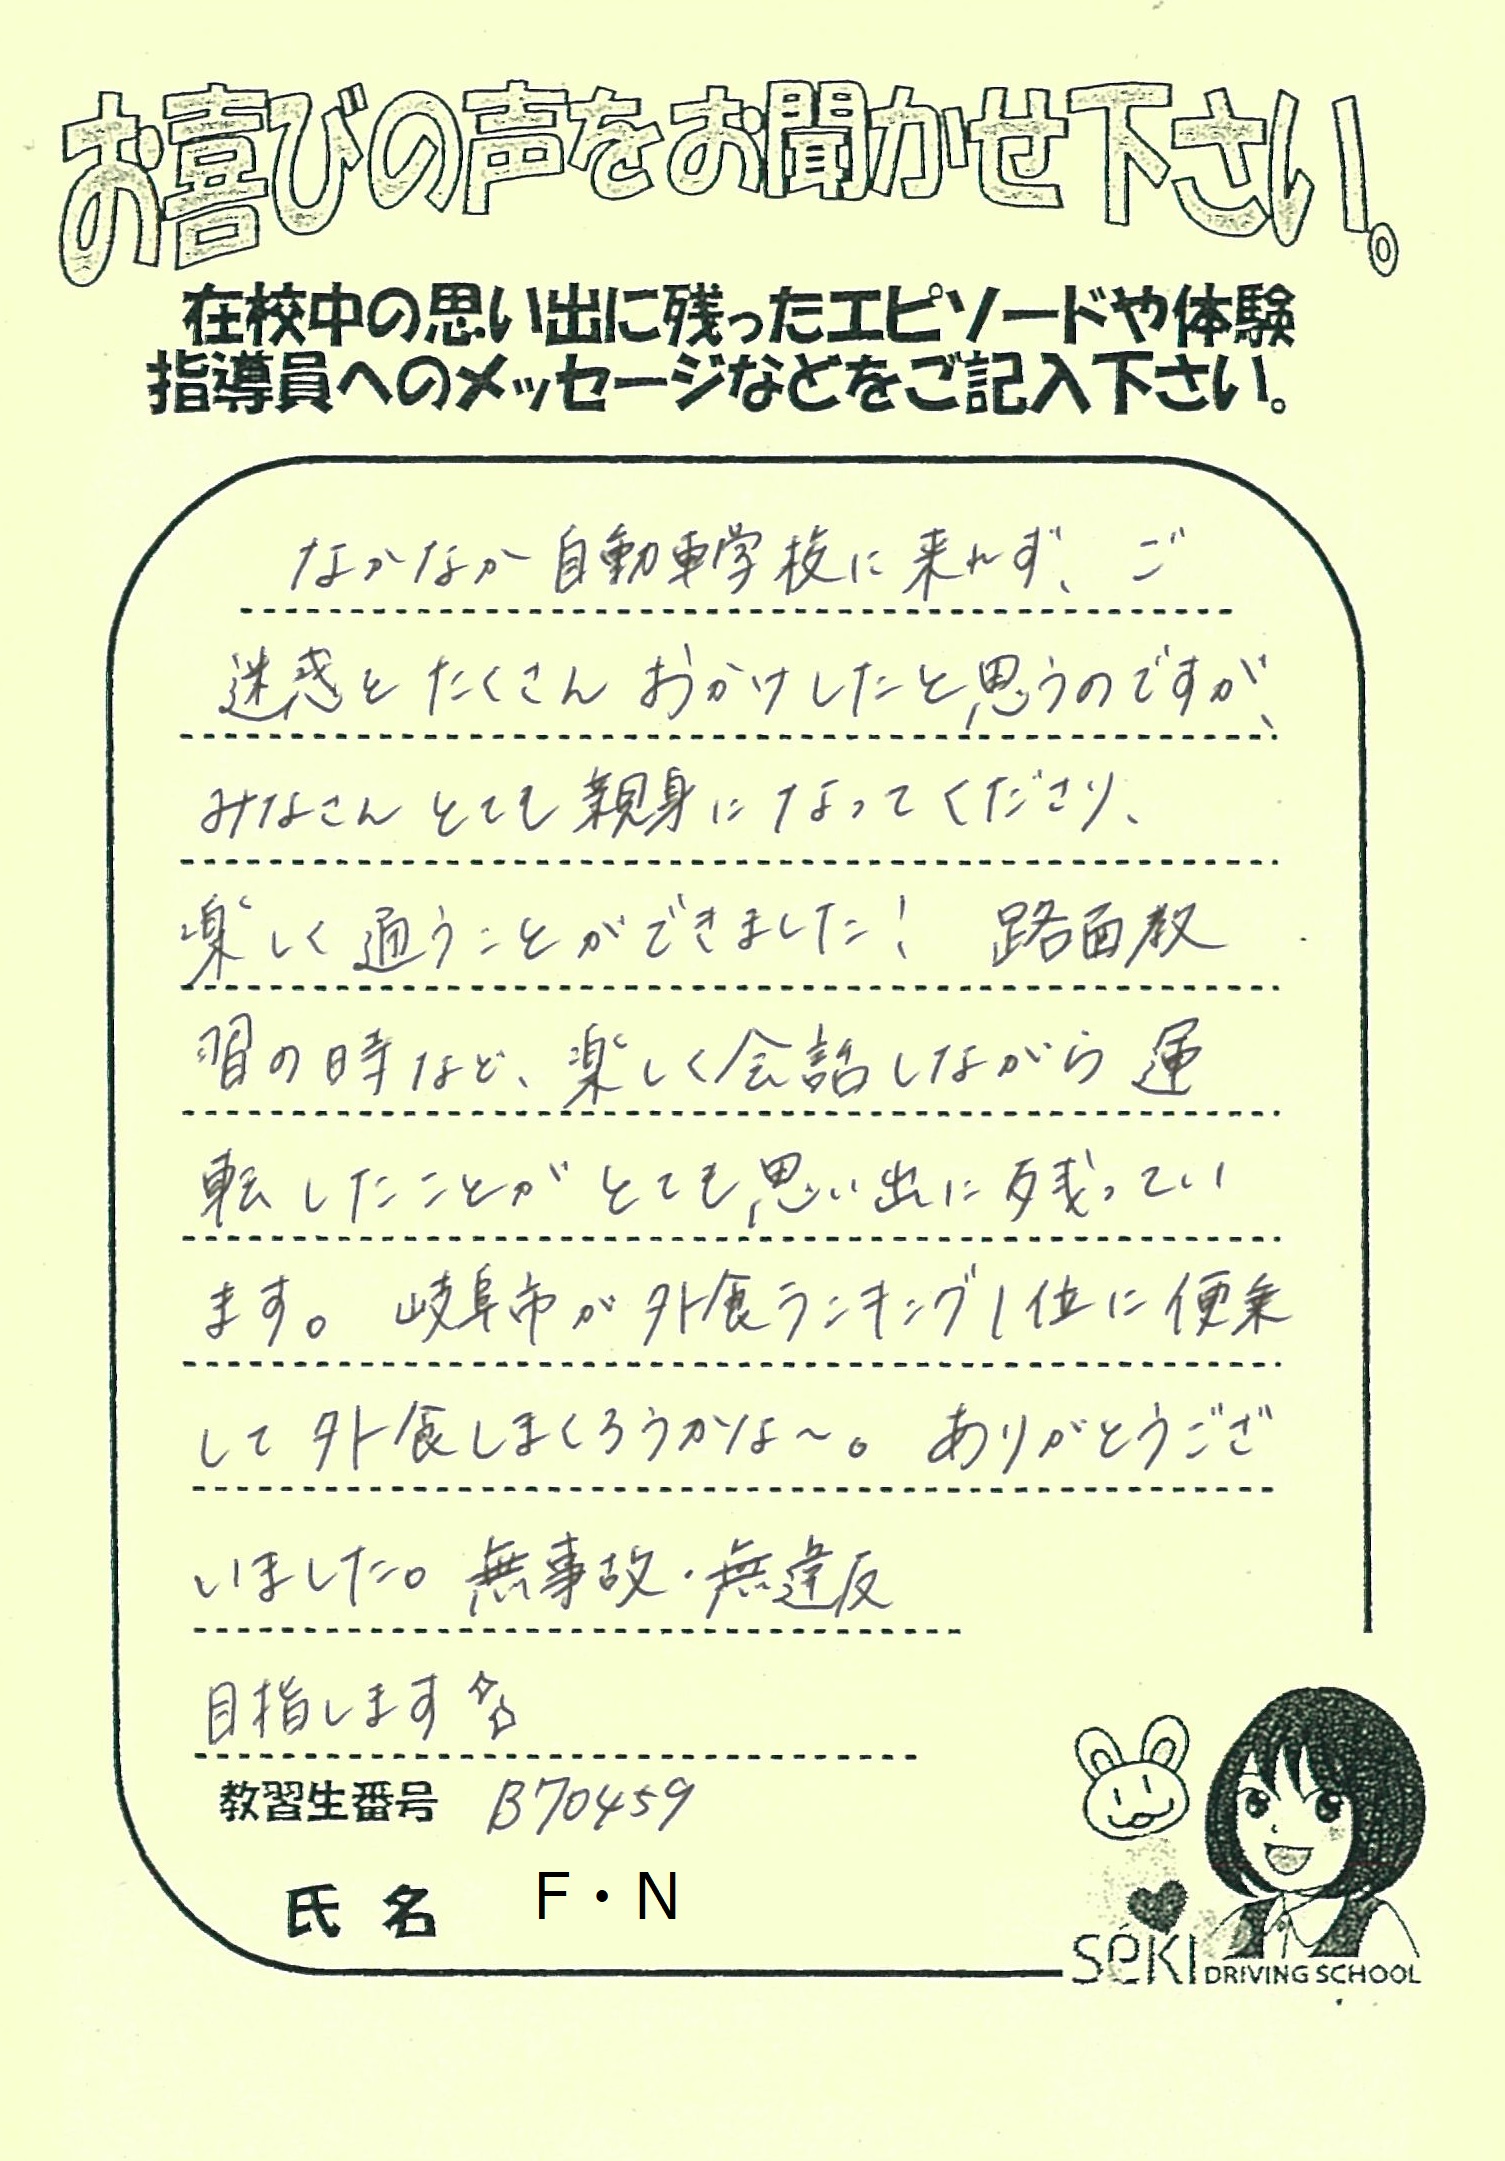 お喜びの声をお聞かせ下さい。
在校中の思い出に残ったエピソードや体験
指導員へのメッセージなどをご記入下さい。
なかなか自動車学校に来れず、ご
迷惑をたくさんおかけしたと思うのですが、
みなさんとても親身になってくださり、
楽しく通うことができました! 路面教
習の時など、楽しく会話しながら運
転したことがとても思い出に残ってい
ます。岐阜市が外食ランキング1位に便乗
して外食しまくろうかな〜。ありがとうござ
いました。無事故・無違反
目指します☆☆
教習生番号 B70459
氏名 F・N
SeKI DRIVING SCHOOL